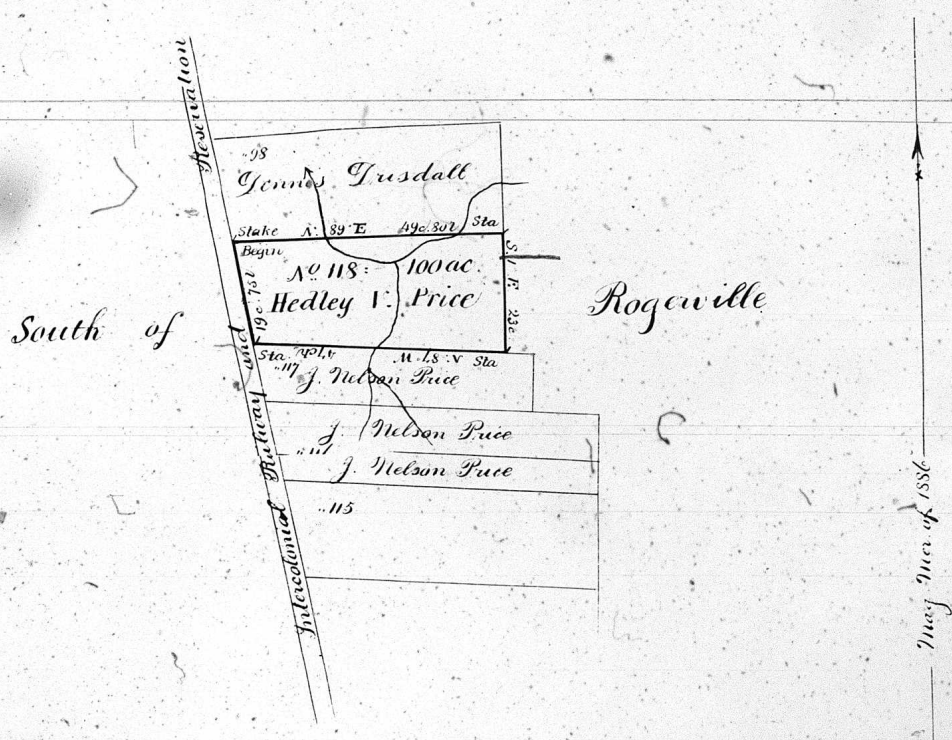 Intercolonial Railway and Reservation
"98
Dennis Trusdall
Stake N. 89° E 49c. 80l Sta
Begin
No 118: 100 ac.
Hedley V. Price
19c. 75l
S 1 E 23c
Sta. 47ch. N. 87. W Sta
South of Rogerville
"117
J. Nelson Price
J. Nelson Price
J. Nelson Price
"115
Mag Mer of 1886